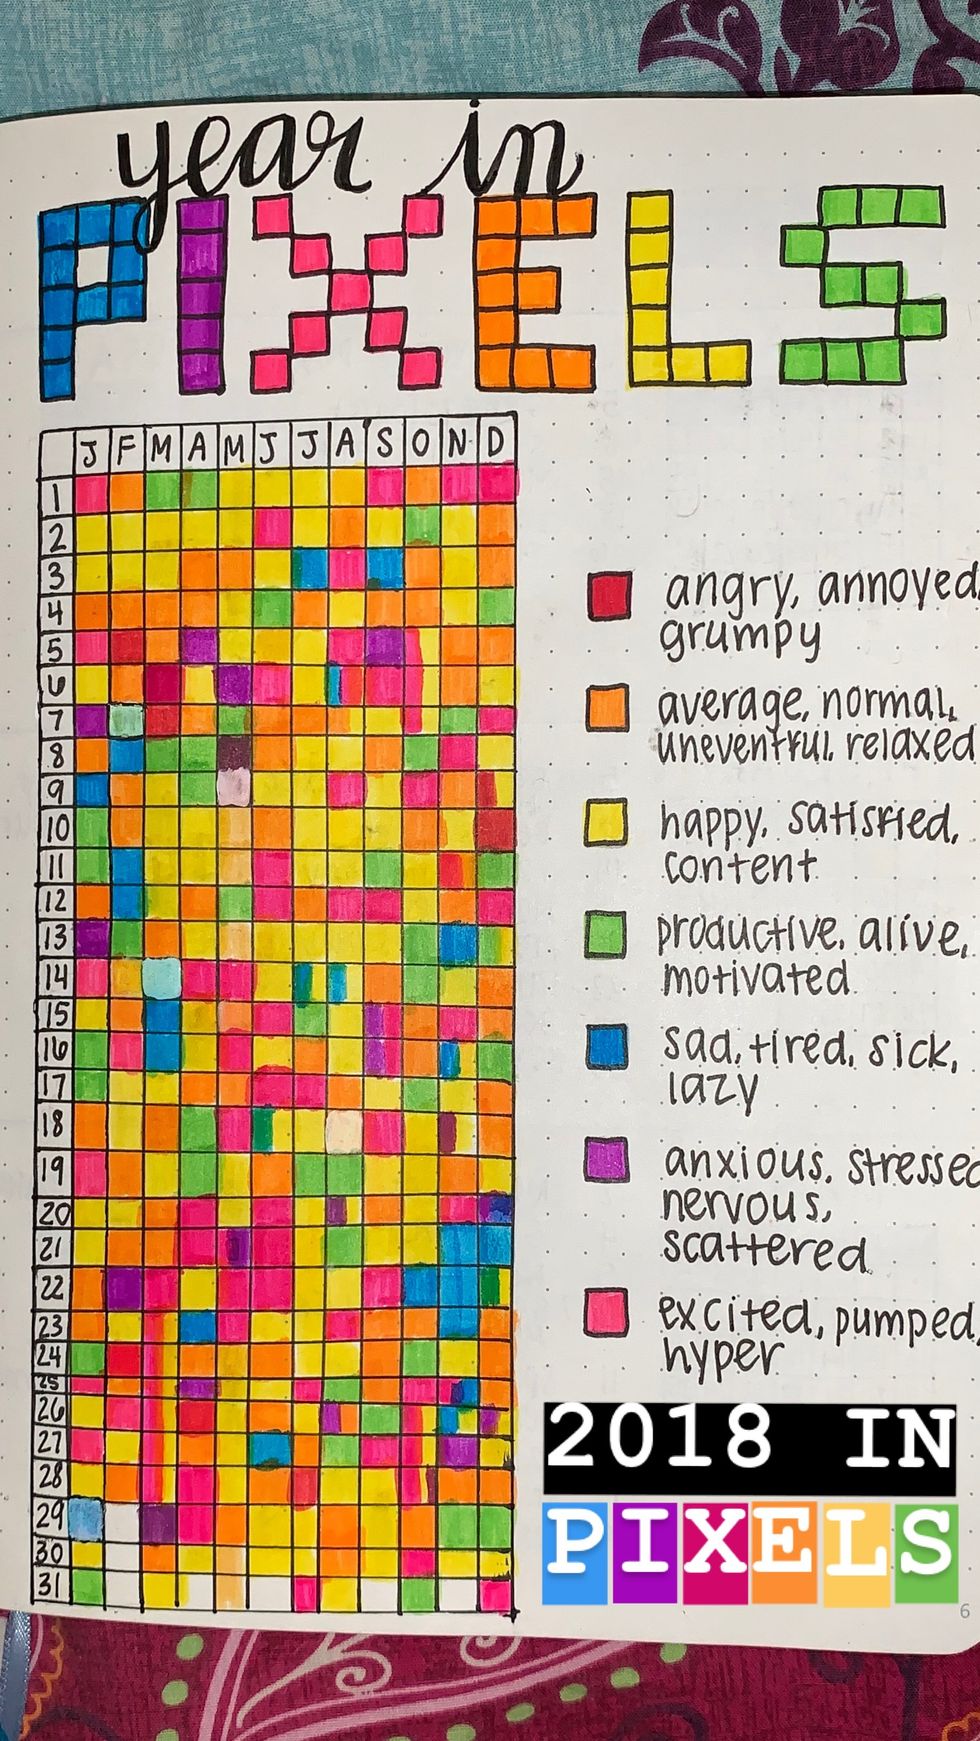 year in
PIXELS
J F M A M J J A S O N D
1
2
3
4
5
6
7
8
9
10
11
12
13
14
15
16
17
18
19
20
21
22
23
24
25
26
27
28
29
30
31
angry, annoyed,
grumpy
average, normal,
uneventful, relaxed
happy, satisfied,
content
productive, alive,
motivated
sad, tired, sick,
lazy
anxious, stressed
nervous,
scattered
excited, pumped,
hyper
2018 IN
PIXELS
6